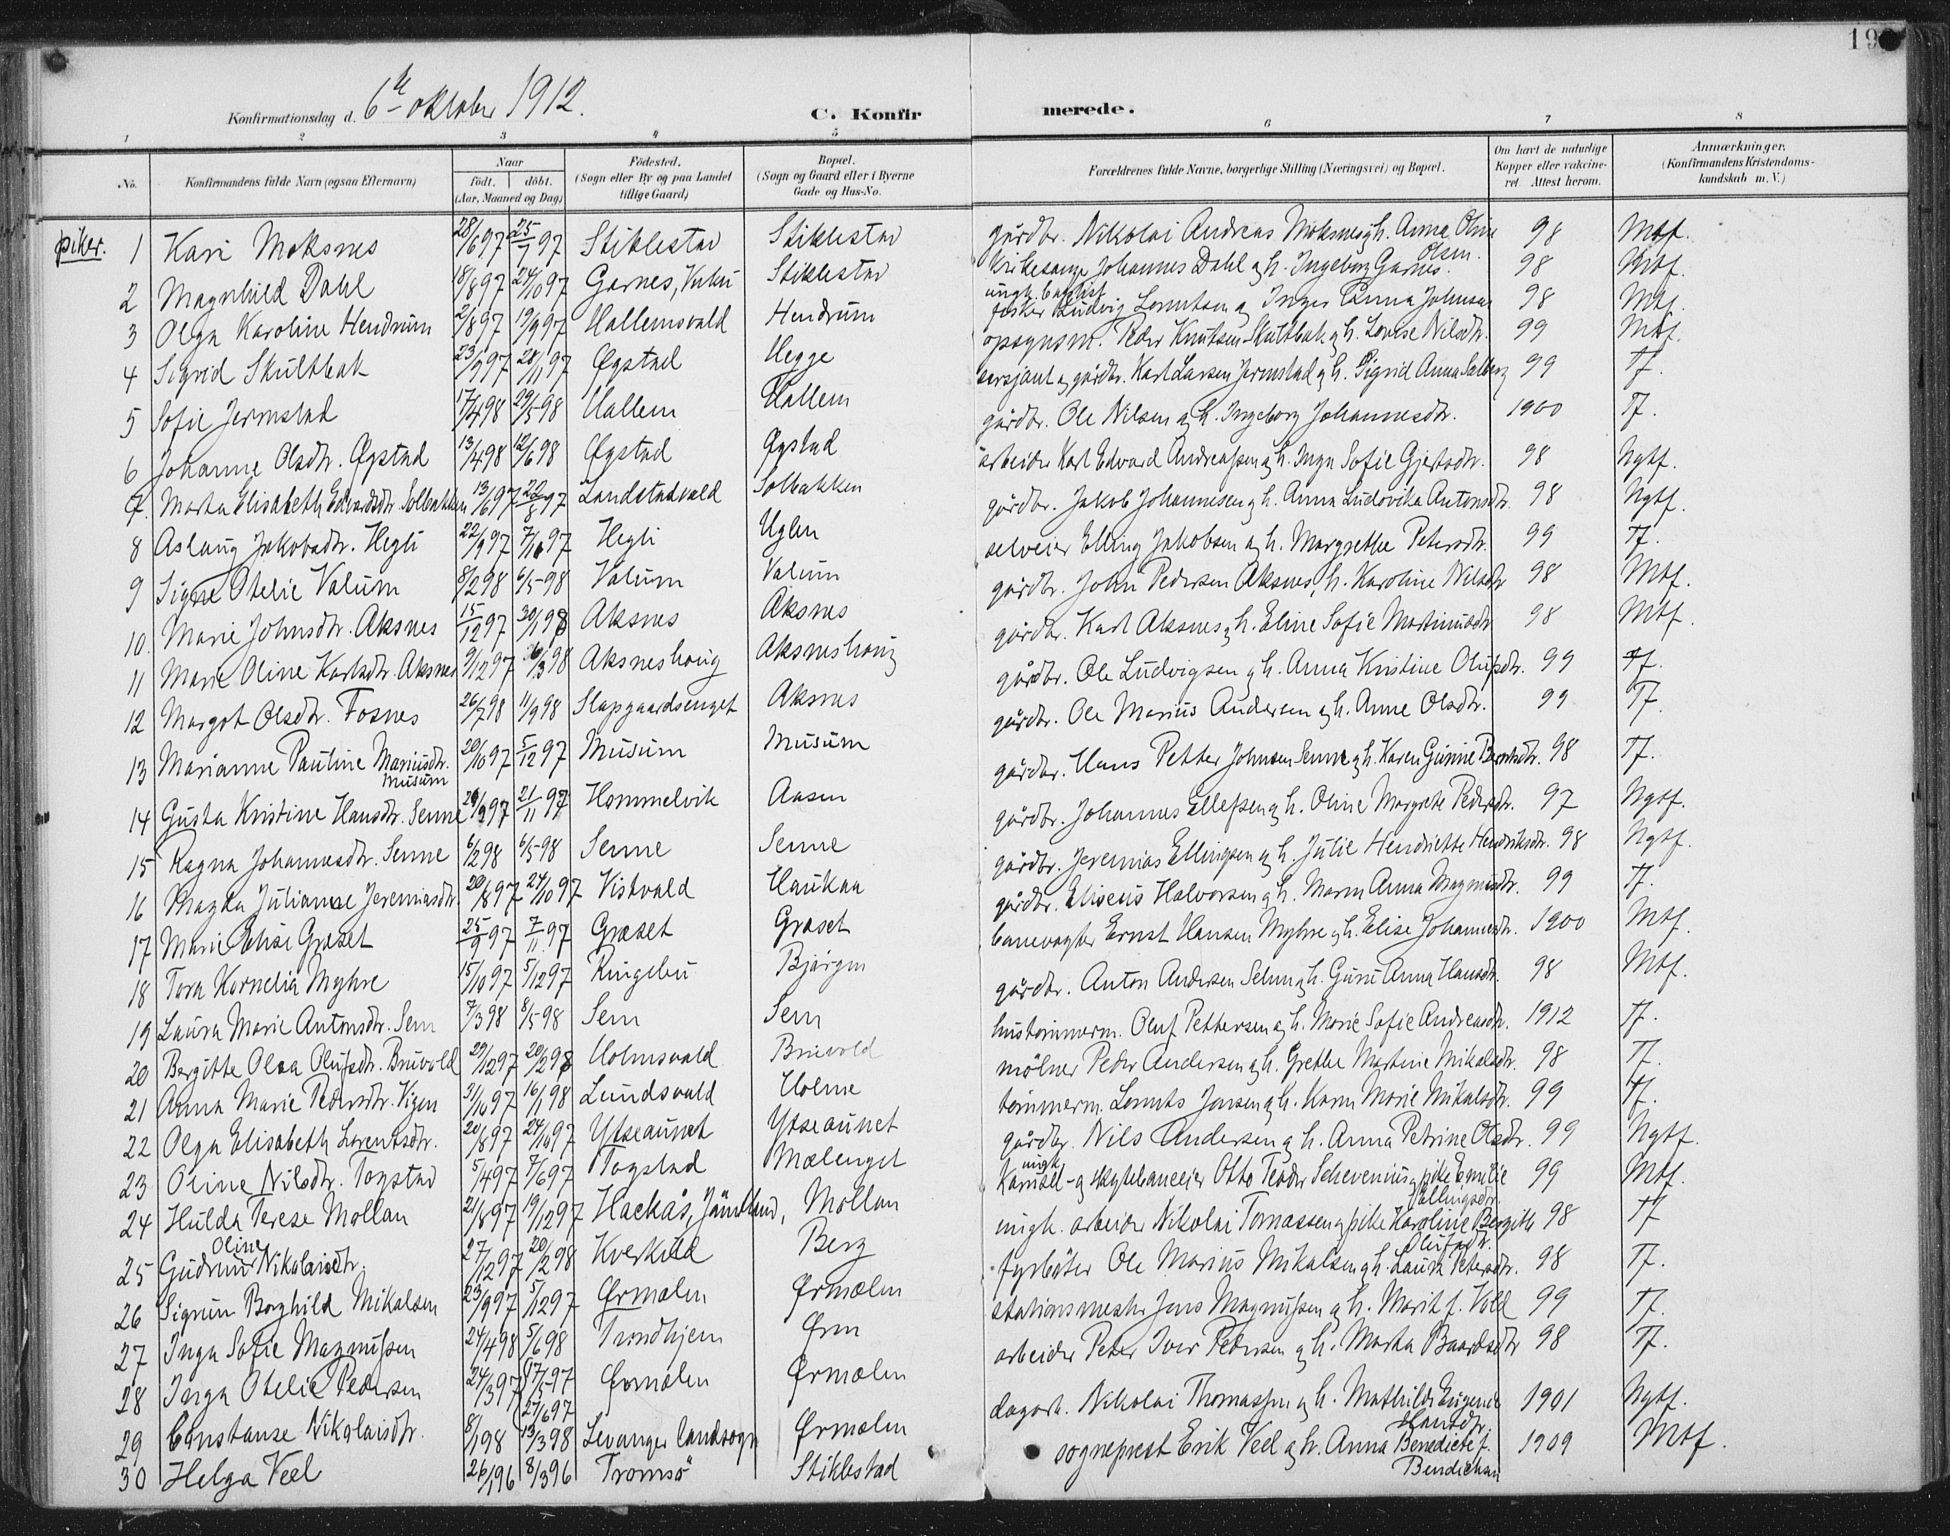 19
Konfirmationsdag d. 6te oktober 1912.
C. Konfirmerede.
1 2 3 4 5 6 7 8
No. Konfirmandens fulde Navn (ogsaa Efternavn) Naar født. døbt. (Aar, Maaned og Dag) Fødested. (Sogn eller By og paa Landet tillige Gaard) Bopæl. (Sogn og Gaard eller i Byerne Gade og Hus-No. Forældrenes fulde Navne, borgerlige Stilling (Næringsvei) og Bopæl. Om havt de naturlige Kopper eller vakcineret. Attest herom. Anmærkninger. (Konfirmandens Kristendomskundskab m. V.)
piker.
1 Kari Moksnes 28/6 97 25/7 97 Stiklestad Stiklestad gårdbr. Nikolai Andreas Moksnes og h. Anna Oline Olsen. 98 Mtf.
2 Magnhild Dahl 18/8 97 24/10 97 Garnes, Vuku Stiklestad kirkesanger Johannes Dahl og h. Ingeborg Garnes. 98 Mtf.
3 Olga Karoline Hendrum 2/8 97 19/9 97 Hallemsvald Hendrum ungk. baptist fisker Ludvig Lorentsen og Inger Anna Johnsen 98 Mtf.
4 Sigrid Skultbak 23/9 97 28/11 97 Øgstad Hegge opsynsm. Peder Knutsen Skultbak og h. Lovise Nilsdtr. 99 Mtf.
5 Sofie Jermstad 17/4 98 29/5 98 Hallem Hallem sersjant og gårdbr. Karl Larsen Jermstad og h. Sigrid Anna Salberg 99 Tf.
6 Johanne Olsdtr. Øgstad 13/4 98 12/6 98 Øgstad Øgstad gårdbr. Ole Nilsen og h. Ingeborg Johannesdtr. 1900 Tf.
7. Marta Elisabeth Edvardsdtr. Solbakken 13/6 97 22/8 97 Landstadvald Solbakken arbeider Karl Edvard Andreassen og h. Inga Sofie Gjertsdtr. 98 Ngtf.
8 Aslaug Jakobsdtr. Hegli 22/9 97 7/11 97 Hegli Uglen gårdbr. Jakob Johannesen og h. Anna Ludovika Antonsdtr. 98 Ngtf.
9 Signe Otelie Valum 8/2 98 6/5-98 Valum Valum selveier Elling Jakobsen og h. Margrethe Petersdtr. 99 Tf.
10. Marie Johnsdtr. Aksnes 15/12 97 30/1 98 Aksnes Aksnes gårdbr. John Pedersen Aksnes, h. Karoline Nilsdtr 98 Mtf.
11 Marie Oline Karlsdtr. Aksnes 9/12 97 6/3 98 Aksneshoug Aksneshoug gårdbr. Karl Aksnes og h. Eline Sofie Martinusdtr 98 Mtf.
12 Margot Olsdtr. Fosnes 26/7 98 11/9 98 Slapgaardsenget Aksnes gårdbr. Ole Ludvigsen og h. Anna Kristine Olufsdtr. 99 Tf.
13 Marianne Pauline Mariusdtr. Musum 20/10 97 5/12 97 Musum Musum gårdbr. Ole Marius Andersen og h. Anne Olsdtr. 99 Tf.
14 Gusta Kristine Hansdtr. Senne 21/11 97 Hommelvik Aasen gårdbr. Hans Petter Johnsen Senne og h. Karen Gurine Berntsdtr. 98 Tf.
15 Ragna Johannesdtr. Senne 6/2 98 6/5-98 Senne Senne gårdbr. Johannes Ellefsen og h. Oline Margrete Pedersdtr. 97 Ngtf.
16 Magda Julianne Jeremiasdtr. 20/8 97 24/10 97 Vistvald Haukaa gårdbr. Jeremias Ellingsen og h. Julie Hendriette Hendriksdtr. 98 Ngtf.
17 Marie Elise Græset 25/9 97 7/11 97 Græset Græset gårdbr. Eliseus Halvorsen og h. Maren Anna Magnusdtr. 99 Tf.
18 Tora Kornelia Myhre 15/10 97 5/12 97 Ringebu Bjørgen banevogter Ernst Hansen Myhre og h. Elise Johannesdtr. 1900 Mtf.
19 Laura Marie Antonsdtr. Sem 7/3 98 8/5-98 Sem Sem gårdbr. Anton Andersen Sehm og h. Guru Anna Hansdtr. 98 Mtf.
20 Bergitte Olea Olufsdtr. Bruvold 29/12 97 20/2 98 Holmsvald Bruvold hustømmerm. Oluf Pettersen og h. Marie Sofie Andreasdtr. 1912 Tf.
21 Anna Marie Pedersdtr. Vigen 31/10 97 16/1 98 Lundsvald Holme mölner Peder Andersen og h. Grethe Martine Mikalsdtr. 98 Tf.
22 Olga Elisabeth Lorentsdtr. 20/8 97 24/10 97 Ytseaunet Ytseaunet tømmerm. Lorents Jensen og h. Karen Marie Mikalsdtr. 99 Tf.
23 Oline Nilsdtr. Togstad 5/4 97 7/6 97 Togstad Mælenget gårdbr. Nils Andersen og h. Anna Petrine Olsdtr. 99 Ngtf.
24 Hulda Terese Mollan 21/8 97 19/12 97 Hackås, Jämtland, Mollan ungk. Otto Teodor Schevenius og pike Emilie Ellingsdtr. 99 Mtf.
25 Gudrun Oline Nikolaisdtr. 27/12 97 20/2 98 Kverkild Berg ungk. arbeider Nikolai Tomassen og pike Karoline Bergitte Olufsdtr. 98 Tf
26 Sigrun Borghild Mikalsen 23/9 97 5/12 97 Ørmælen Ørmælen fyrbøter Ole Marius Mikalsen og h. Laura Petersdtr. 98 Tf.
27 Inga Sofie Magnussen 24/4 98 5/6 98 Trondhjem Ørin stationsmester Jens Magnussen og h. Marit f. Vold 99 Tf.
28 Inga Otelie Pedersen 24/3 97 27/5-97 27/6 97 Ørmælen Ørmælen arbeider Peter Iver Pedersen og h. Marta Baardsdtr 98 Tf.
29 Constanse Nikolaisdtr. 8/1 98 13/3 98 Levanger landsogn Ørmælen dagarb. Nikolai Thomassen og h. Mathilde Eugenie Hansdtr. 1901 Ngtf.
30 Helga Veel 26/1 96 8/3 96 Tromsö Stiklestad sogneprest Erik Veel og h. Anna Benedicte f. Bendichsen 1909 Mtf.